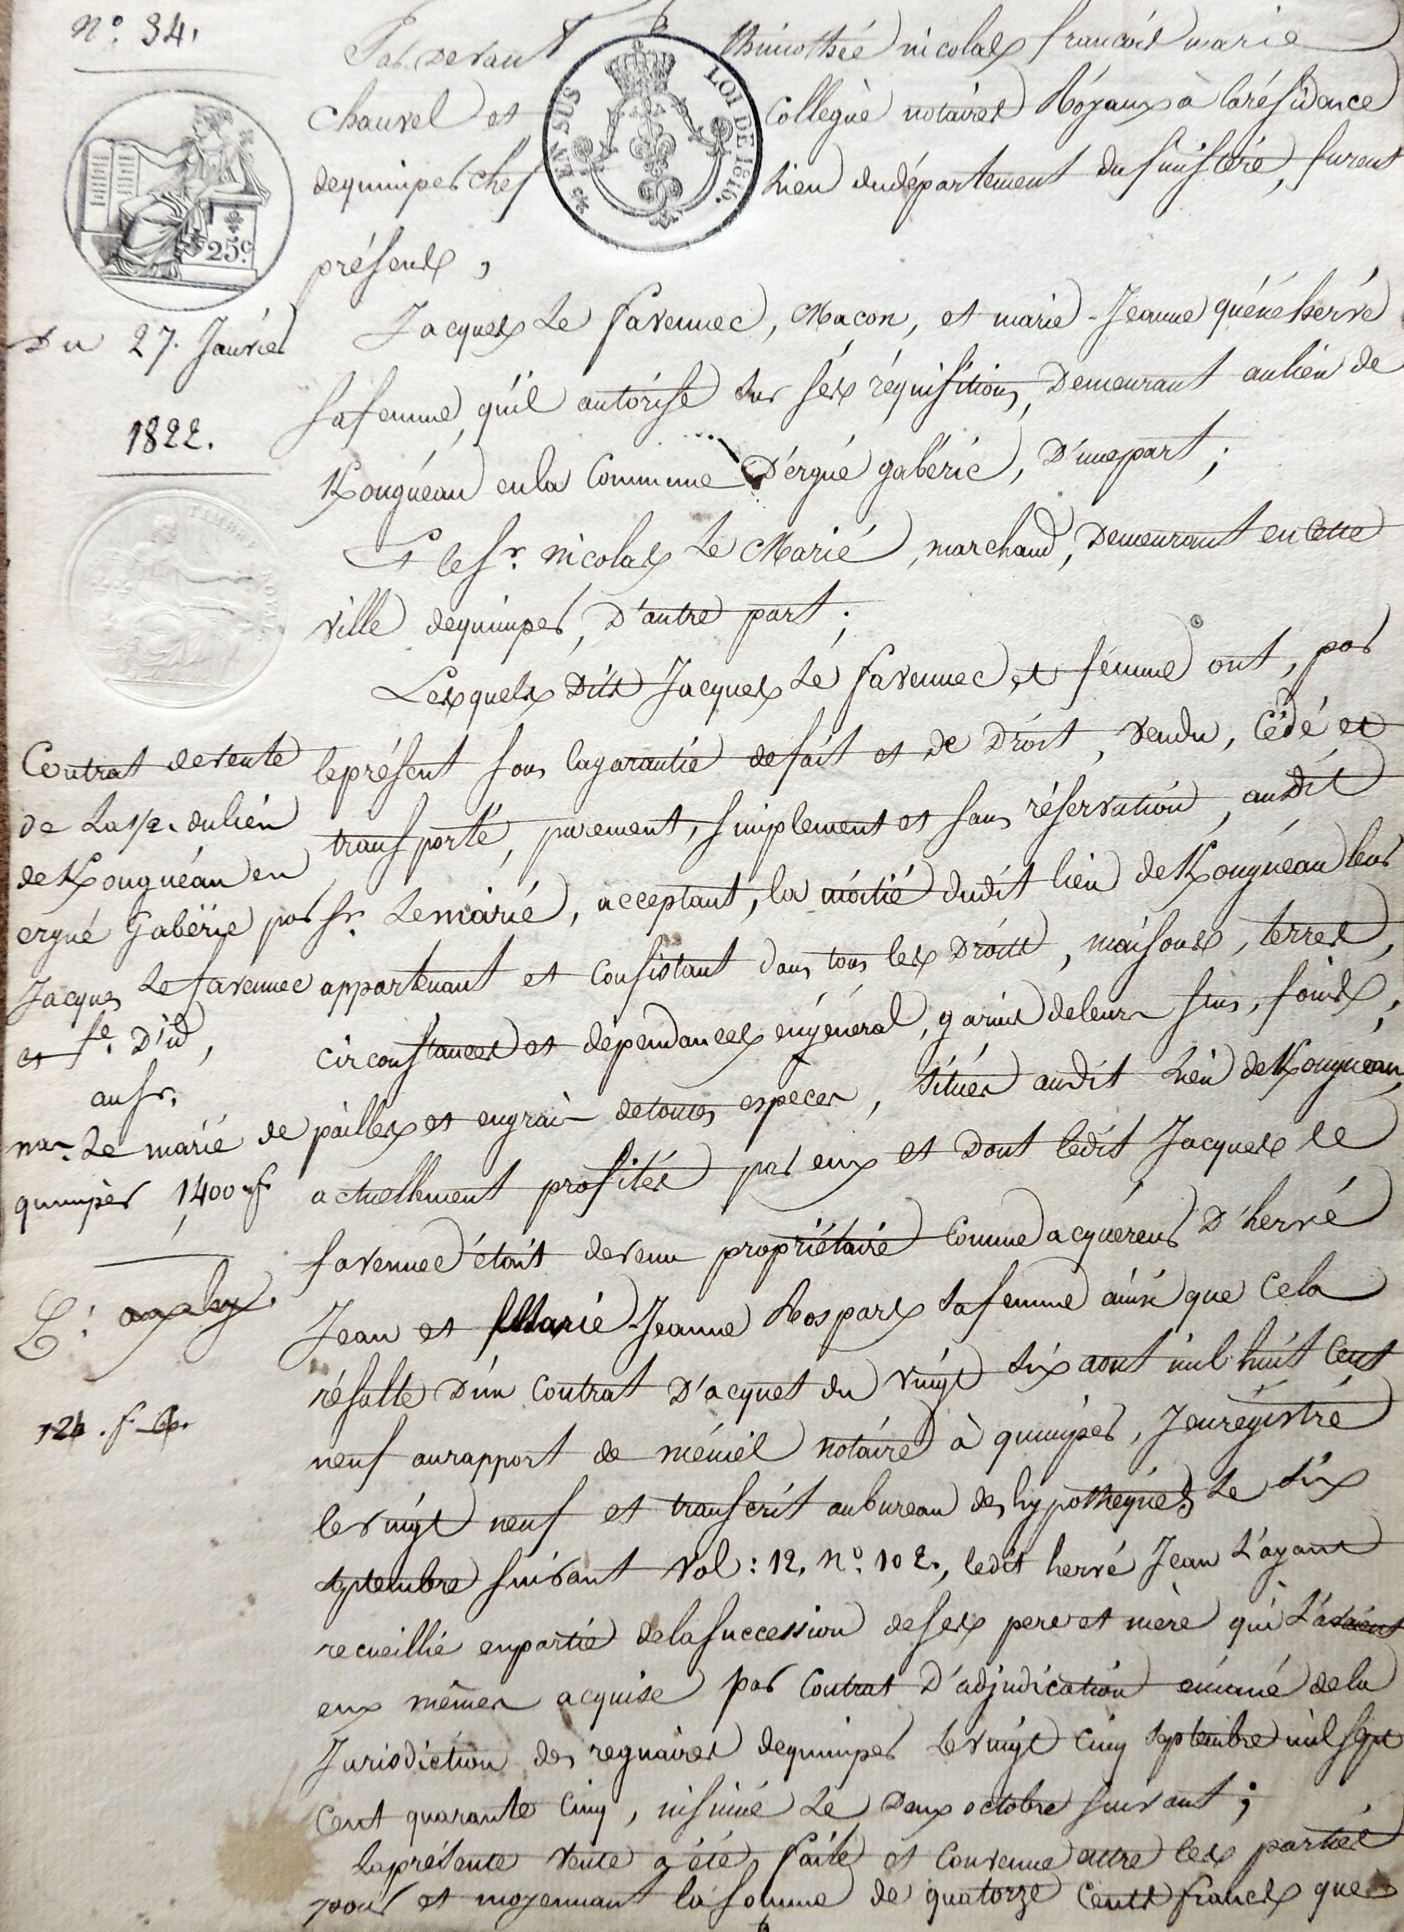 N.° 34.
25.c
Du 27. Janvier
1822.
TIMBRE ROYAL
Contrat de vente
de La 1/2. du lieu
de Kougnéau en
ergué Gabéric par
Jacques Le favennec
et fe. D'id,
au Sr.
Nas. Le marié de
quimper 1400 f
124. f
EN SUS LOI DE 1816.
Par devant thimothée nicolas francois marie
Chauvel et Collegue notaires Royaux à la résidence
de quimper chef Lieu du département du finistère, furent
présents,
Jacques Le favennec, Macon, et marie-Jeanne quénéhervé
sa femme, qu'il autorise sur ses réquisitions, Demeurant au lieu de
Kougnéau en la Commune D'ergué gabéric, D'une part;
Et le Sr. Nicolas Le Marié, marchand, Demeurant en Cette
ville de quimper, D'autre part;
Lesquels Dits Jacques Le favennec et femme ont, par
le présent sous la garantie de fait et de Droit, vendu, Cédé et
transporté, purement, simplement et sans réservation, audit
Sr. Le marié, acceptant, la moitié dudit lieu de Kougnéau leur
appartenant et Consistant dans tous les Droits, maisons, terres,
circonstances et dépendances en général, garnis de leurs fins, foins,
pailles et engrais de toutes espèces, situés audit Lieu de Kougneau,
actuellement profités par eux et Dont ledit Jacques Le
favennec était devenu propriétaire Comme acquéreur D'hervé
Jean et Marie-Jeanne Rospars sa femme ainsi que Cela
résulte D'un Contrat D'acquet du vingt six aout mil huit Cent
neuf au rapport de méniel notaire à quimper, Jenrégistré
le vingt neuf et transcrit au bureau des hypothéques Le six
septembre suivant Vol: 12, N.° 102., ledit hervé Jean L'ayant
recueillie en partie de la succession de ses pere et mère qui L'avaient
eux mêmes acquise par Contrat D'adjudication émané de la
Jurisdiction des regaires de quimper Le vingt Cinq septembre mil sept
Cent quarante Cinq, insinué Le Deux octobre suivant;
La présente Vente a été faite et Convenue entre les parties
pour et moyennant la somme de quatorze Cents francs que